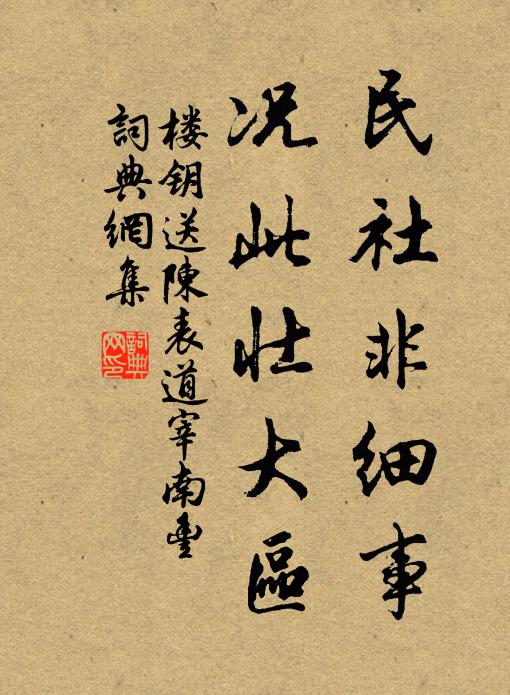 民社非细事
况此壮大區
楼钥送陳表道宰南豐
詞典網集
詞典網印